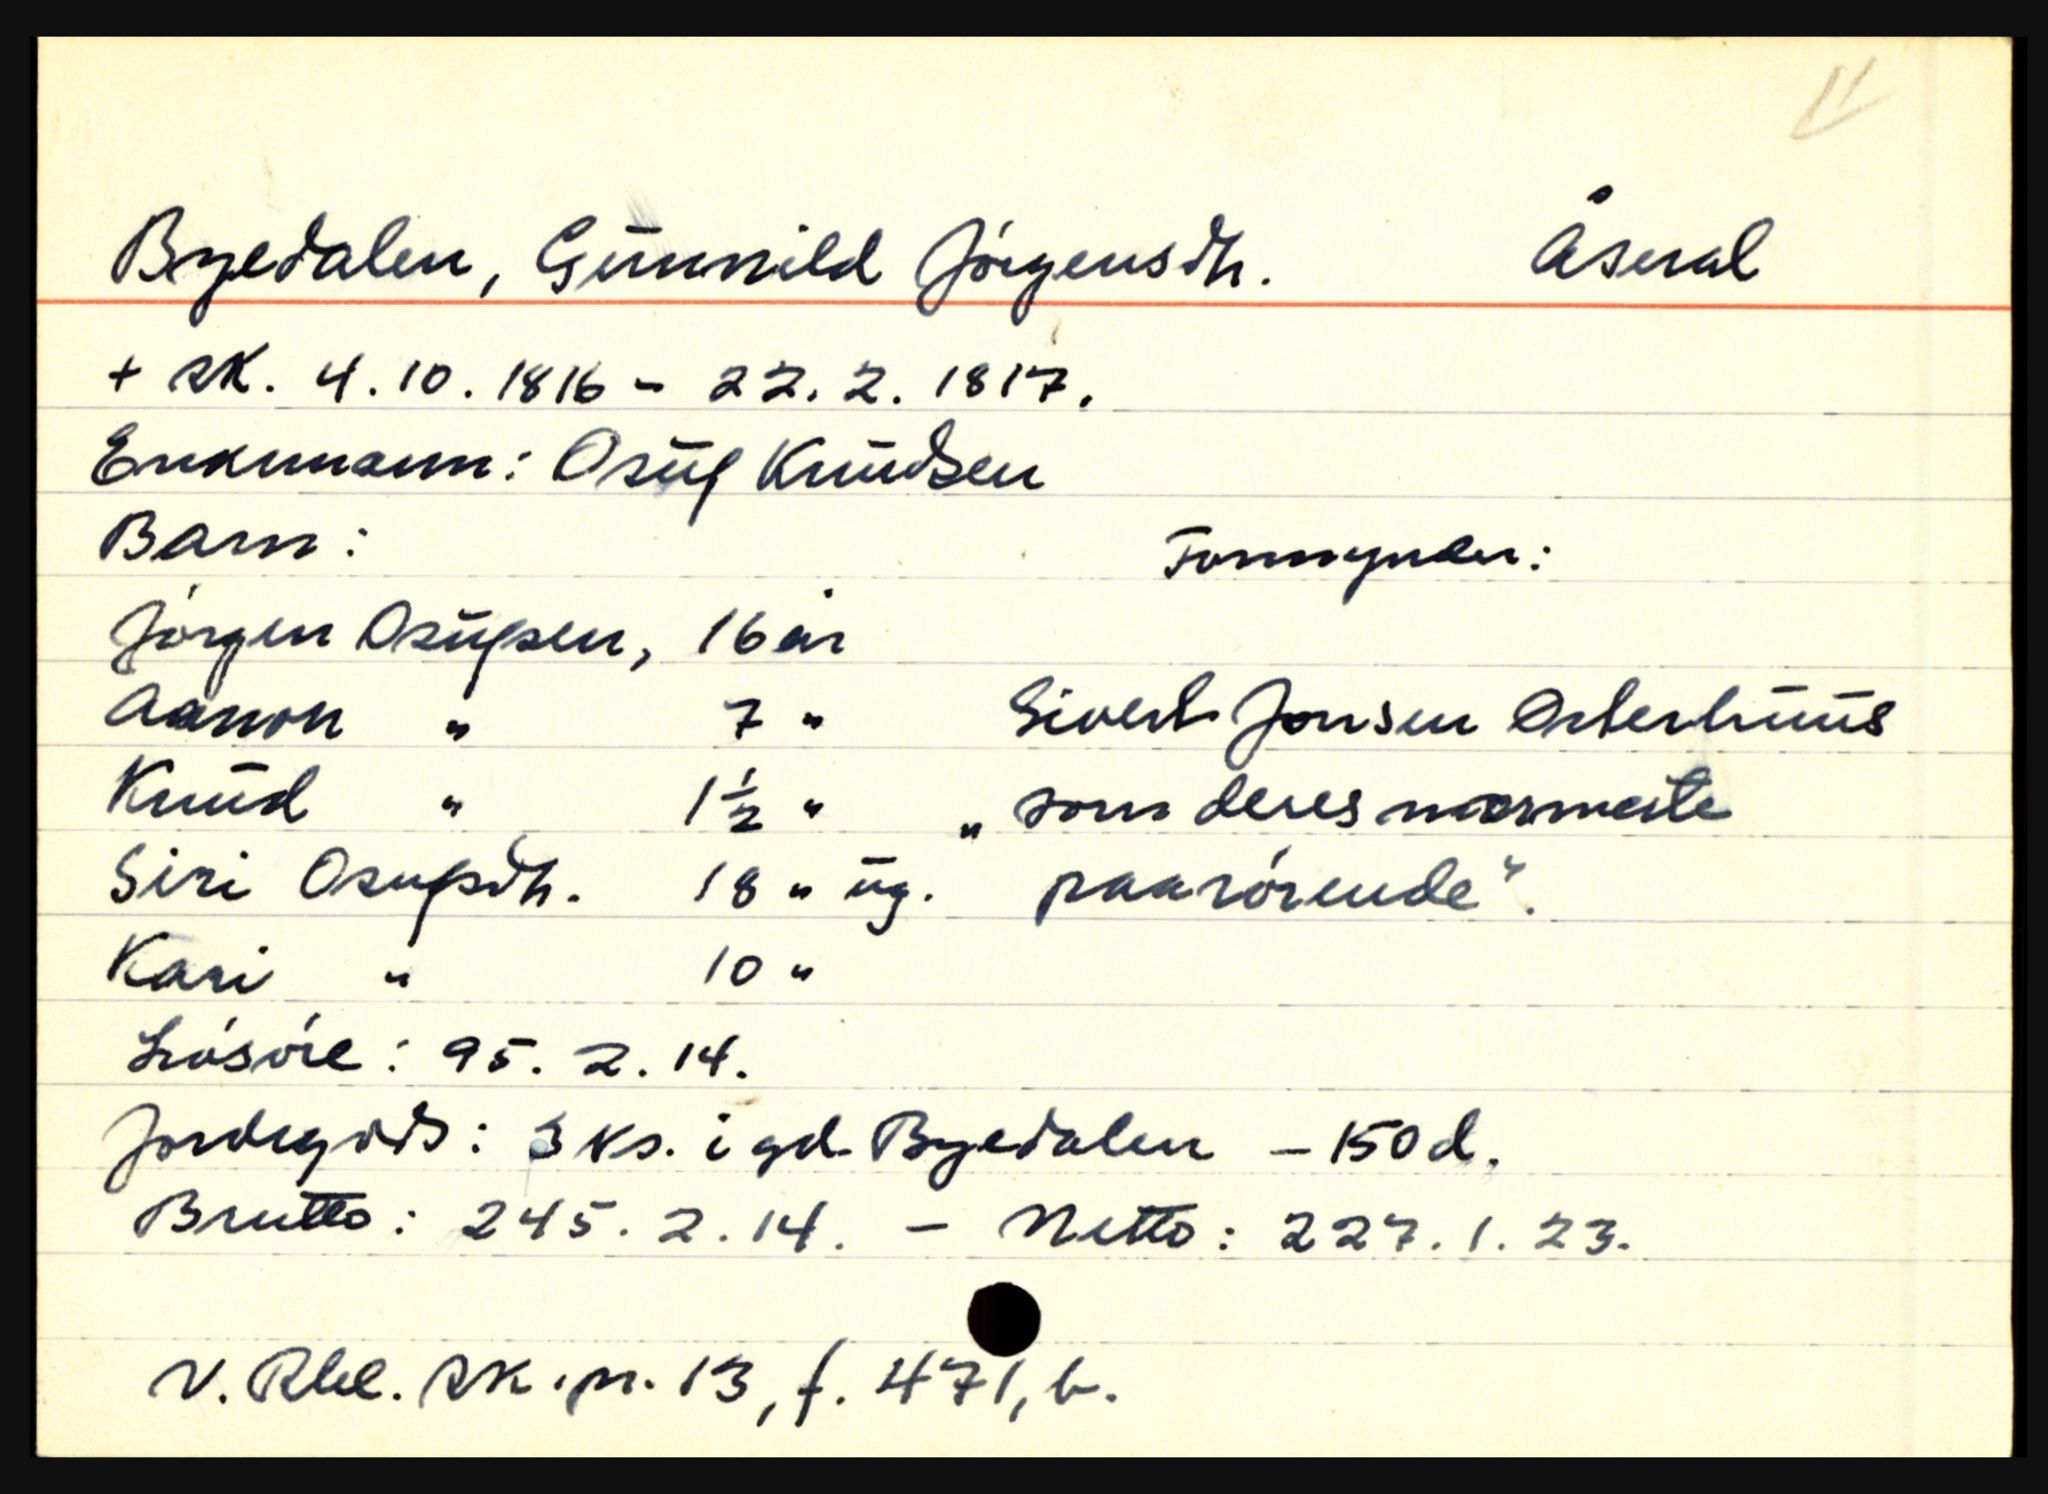 Byedalen, Gunnild Jörgensdtr. Åseral
+ sk. 4.10.1816 - 22.2.1817.
Enkemann: Osuf Knudsen
Barn: Formynder:
Jörgen Osufsen, 16 år
Aanon " 7 " Sivert Jonsen Osterhuus
Knud " 1½ " "som deres nærmeste
Siri Osufsdtr. 18 " ug. paarörende".
Kari " 10 "
Lösöre: 95. 2. 14.
Jordegods: 3 ks. i gd. Byedalen - 150 d.
Brutto: 245. 2. 14. - Netto: 227. 1. 23.
V. Rbl. sk. pr. 13, f. 471, b.